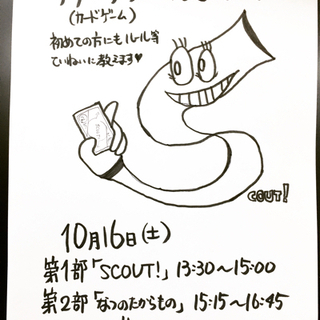 (カードゲーム)
初めての方にもルール等
ていねいに教えます♥
COUT!
10月16日(土)
第1部「SCOUT!」13:30〜15:00
第2部「なつのたからもの」15:15〜16:45